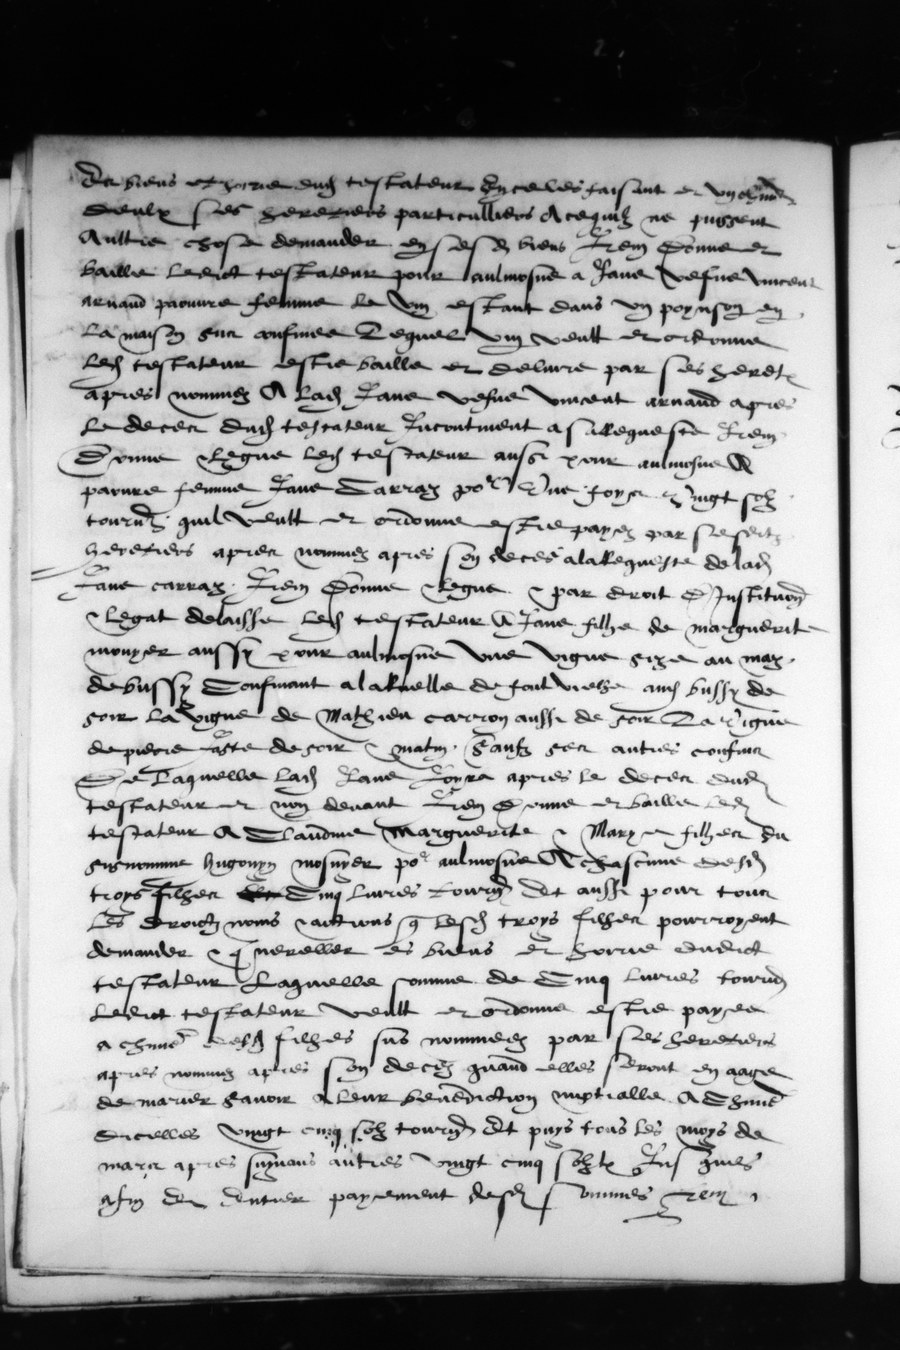 des biens et hoirie dud testateur En icelles faisant et
deulx ses heretiers particulliers A ce quilz ne puissent
Aultre chose demander en sesd biens Item Donne et
baille ledict testateur pour aulmosne a Jane vefve vincent
arnaud paouvre femme le vin estant dans un poynson en
la maison sus confinee Lequel vin veult et ordonne
Led testateur estre baille et delivre par ses heret
apres nommez A lad Jane vefve vincent arnaud apres
Le deces dud testateur Incontinent a sa requeste Item
Donne & legue led testateur aussi pour aulmosne A
paouvre femme Jane Carraz por Une foys & vingt solz
tournz quil veult et ordonne estre payez par sesditz
heretiers apres nommez apres son deces a la Requeste de lad
Jane carraz Item Donne & legue & par droit D Institution
& legat delaisse Led testateur A Jane filhe de marguerite
monyer aussy pour aulmosne une vigne size au maz
de bussy Confinant a la Ruelle de aud bussy de
soir La vigne de Mathieu carron aussi de soir La vigne
de pierre de soir & matin Saufz ses autres confins
De Laquelle lad Jane Joyra apres le deces dud
testateur et non devant Item Donne et baille led
testateur A Claudine Marguerite & Marye filhes du
surnomme hugonyn mosnyer por aulmosne A chascune desd
troys filhes Cinq livres tournz Et aussi pour tous
Les droictz noms & actions q lesd troys filhes pourroyent
demander & quereller es biens et hoirie dudict
testateur Laquelle somme de Cinq livres tournz
Ledict testateur veult et ordonne estre payee
a chune desd filhes sus nommees par ses heretiers
apres nommez apres son deces quand elles seront en aage
de marier savoir A leur benediction nuptialle A Chune
dicelles vingt cinq solz tournz Et puys tous les moys de
mars apres suyvans autres vingt cinq solz
afin de Entier payement desd sommes Item